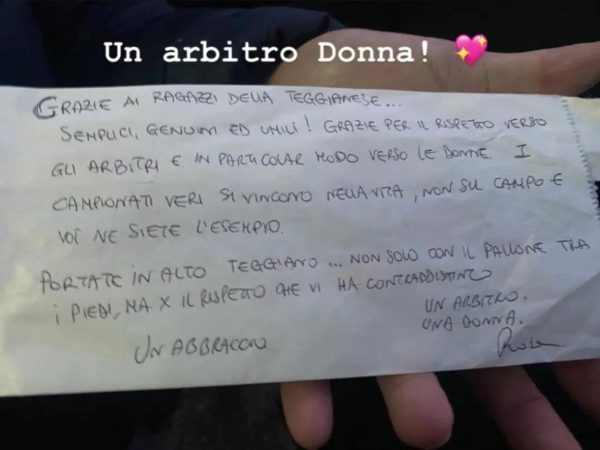 Un arbitro Donna! 💖
GRAZIE AI RAGAZZI DELLA TEGGIANESE...
SEMPLICI, GENUINI ED UMILI! GRAZIE PER IL RISPETTO VERSO
GLI ARBITRI E IN PARTICOLAR MODO VERSO LE DONNE. I
CAMPIONATI VERI SI VINCONO NELLA VITA, NON SUL CAMPO E
VOI NE SIETE L'ESEMPIO.
PORTATE IN ALTO TEGGIANO... NON SOLO CON IL PALLONE TRA
I PIEDI, MA X IL RISPETTO CHE VI HA CONTRADDISTINTO
UN ARBITRO.
UNA DONNA.
UN ABBRACCIO